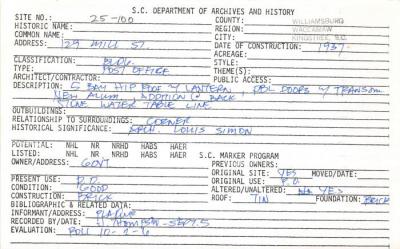 S.C. DEPARTMENT OF ARCHIVES AND HISTORY
SITE NO.: 25-100 COUNTY: WILLIAMSBURG
HISTORIC NAME: REGION: WACCAMAW
COMMON NAME: CITY: KINGSTREE, S.C.
ADDRESS: 29 MILL ST. DATE OF CONSTRUCTION: 1937
ACREAGE:
STYLE:
CLASSIFICATION: BLDG. THEME(S):
TYPE: POST OFFICE PUBLIC ACCESS:
ARCHITECT/CONTRACTOR:
DESCRIPTION: 5 BAY HIP ROOF W/ LANTERN, DBL DOORS W/ TRANSOM
NEW ALUM. ADDITION @ BACK
STONE WATER TABLE LINE
OUTBUILDINGS:
RELATIONSHIP TO SURROUNDINGS: CORNER
HISTORICAL SIGNIFICANCE: ARCH. LOUIS SIMON
POTENTIAL: NHL NR NRHD HABS HAER
LISTED: NHL NR NRHD HABS HAER S.C. MARKER PROGRAM
OWNER/ADDRESS: GOVT PREVIOUS OWNERS:
ORIGINAL SITE: YES MOVED/DATE:
PRESENT USE: P.O. ORIGINAL USE: P.O.
CONDITION: GOOD ALTERED/UNALTERED: YES
CONSTRUCTION: BRICK ROOF: TIN FOUNDATION: BRICK
BIBLIOGRAPHIC & RELATED DATA:
INFORMANT/ADDRESS: PLAQUE
RECORDED BY/DATE: THOMPSON - SEPT. 5
EVALUATION: ROLL 10-